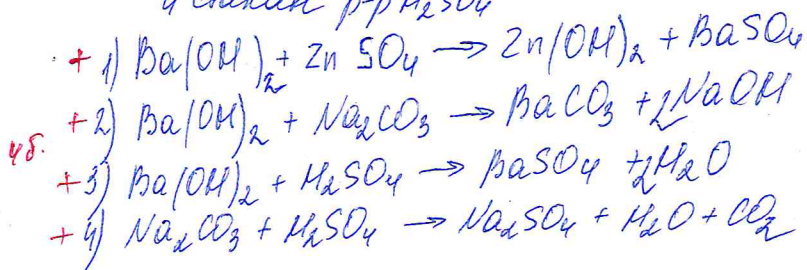 4 стакан р-р H₂SO₄
+ 1) Ba(OH)₂ + ZnSO₄ → Zn(OH)₂ + BaSO₄
+ 2) Ba(OH)₂ + Na₂CO₃ → BaCO₃ + 2NaOH
4б.
+ 3) Ba(OH)₂ + H₂SO₄ → BaSO₄ + 2H₂O
+ 4) Na₂CO₃ + H₂SO₄ → Na₂SO₄ + H₂O + CO₂